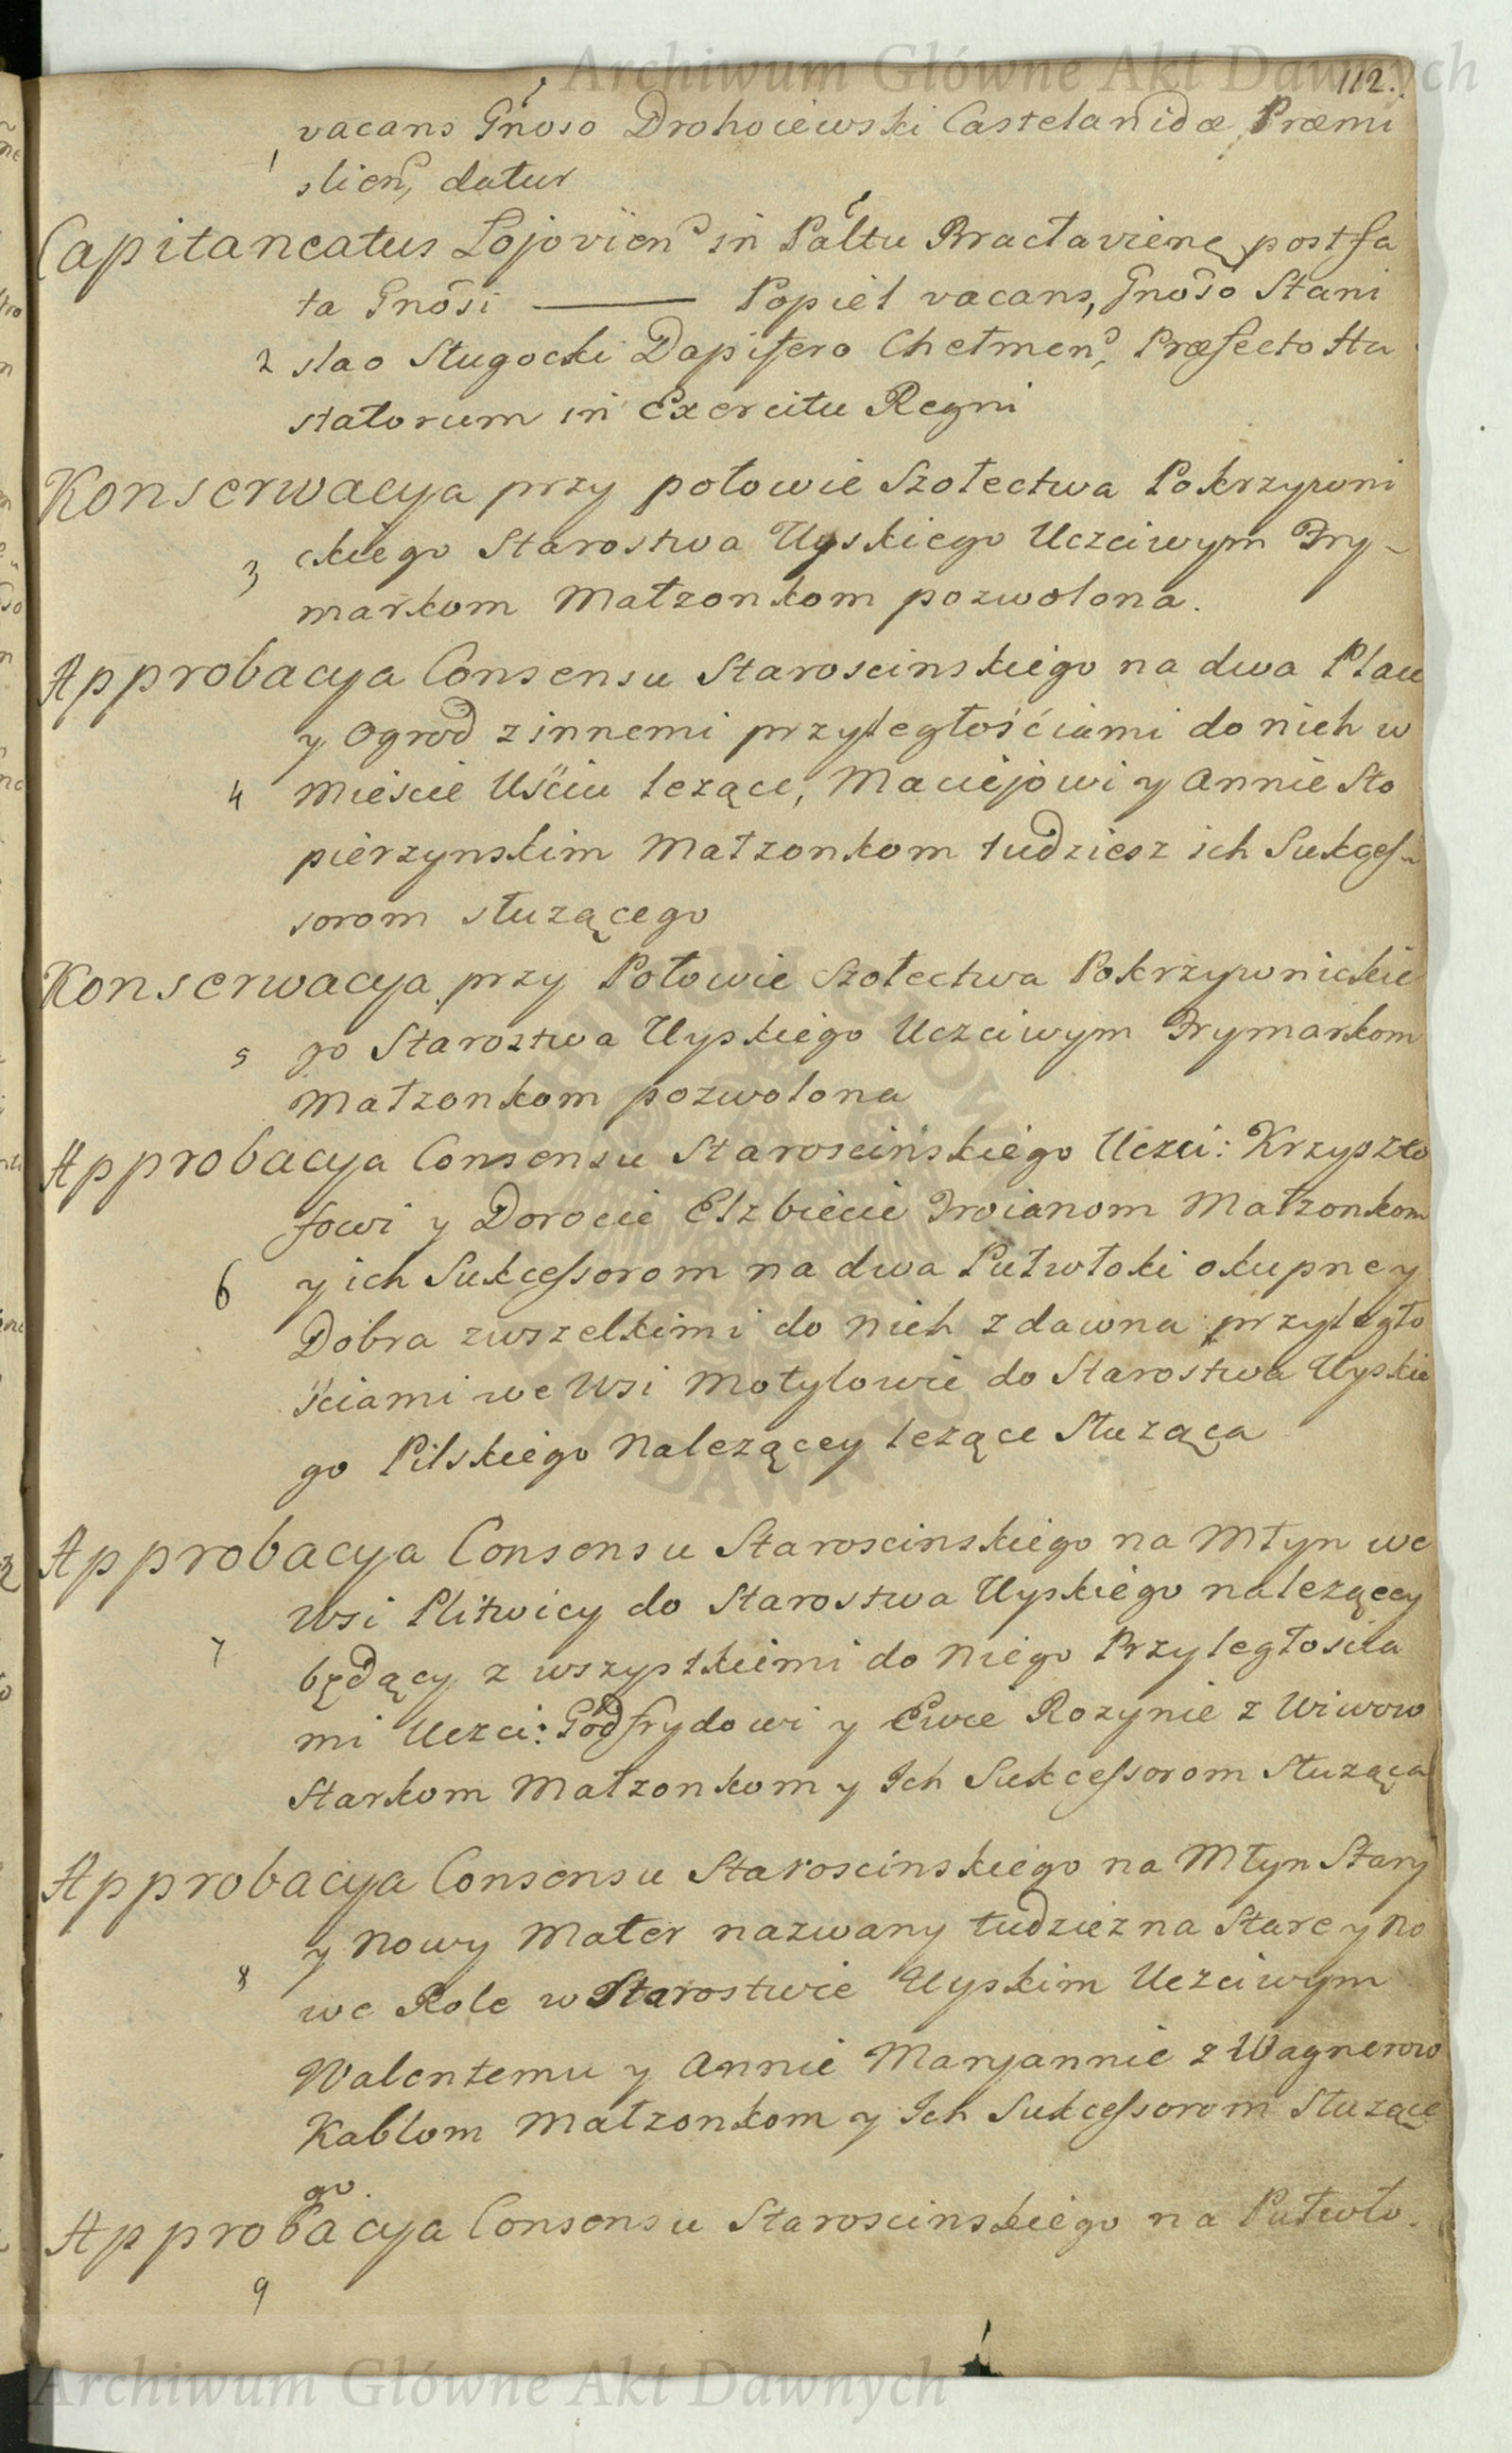 Archiwum Główne Akt Dawnych
112.
vacans Gnoso Drohoiewski Castelanidæ Præmi
1 slien, datur
Capitaneatus Łojovien in Páltu Bracłaviene post fa
ta Gnôsi ——— Popiel vacans, Gnôso Stani
2 slao Sługocki Dapifero Chełmen, Præfecto Hu
statorum in Exercitu Regni
Konserwacya przy połowie Szołectwa Pokrzywni
3 ckiego Starostwa Uyskiego Uczciwym Fry-
markom Małzonkom pozwolona.
Approbacya Consensu Staroscinskiego na dwa Place
y Ogrod z innemi przyległościami do nich w
4 Mieście Uściu lezące, Maciejowi y Annie Sto
pierzynskim Małzonkom tudziesz ich Sukces-
sorom słuzącego
Konserwacya przy Połowie Szołectwa Pokrzywnickie
5 go Starostwa Uyskiego Uczciwym Frymarkom
Małzonkom pozwolona
Approbacya Consensu Starościńskiego Uczci: Krzyszto
fowi y Dorocie Elzbiecie Troianom Małzonkom
6 y ich Sukcessorom na dwa Pułwłoki okupney
Dobra zwszelkimi do nich zdawna przyległo
ściami we Wsi Motylowie do Starostwa Uyskie
go Pilskiego Nalezącey lezące Słuząca
Approbacya Consensu Staroscinskiego na Młyn we
Wsi Plitwicy do Starostwa Uyskiego nalezącey
7 będący z wszystkiemi do Niego Przyległoscia
mi Uczci: Godfrydowi y Ewie Rozynie z Wiwow
Starkom Małzonkom y Ich Sukcessorom Słuząca
Approbacya Consensu Staroscinskiego na Młyn Stary
y Nowy Mater nazwany tudziez na Stare y No
8 we Role w Starostwie Uyskim Uczciwym
Walentemu y Annie Maryannie z Wagnerow
Kablom Małzonkom y Ich Sukcessorom Słuzące
go.
Approbacya Consensu Staroscinskiego na Pułwło.
9
Archiwum Główne Akt Dawnych